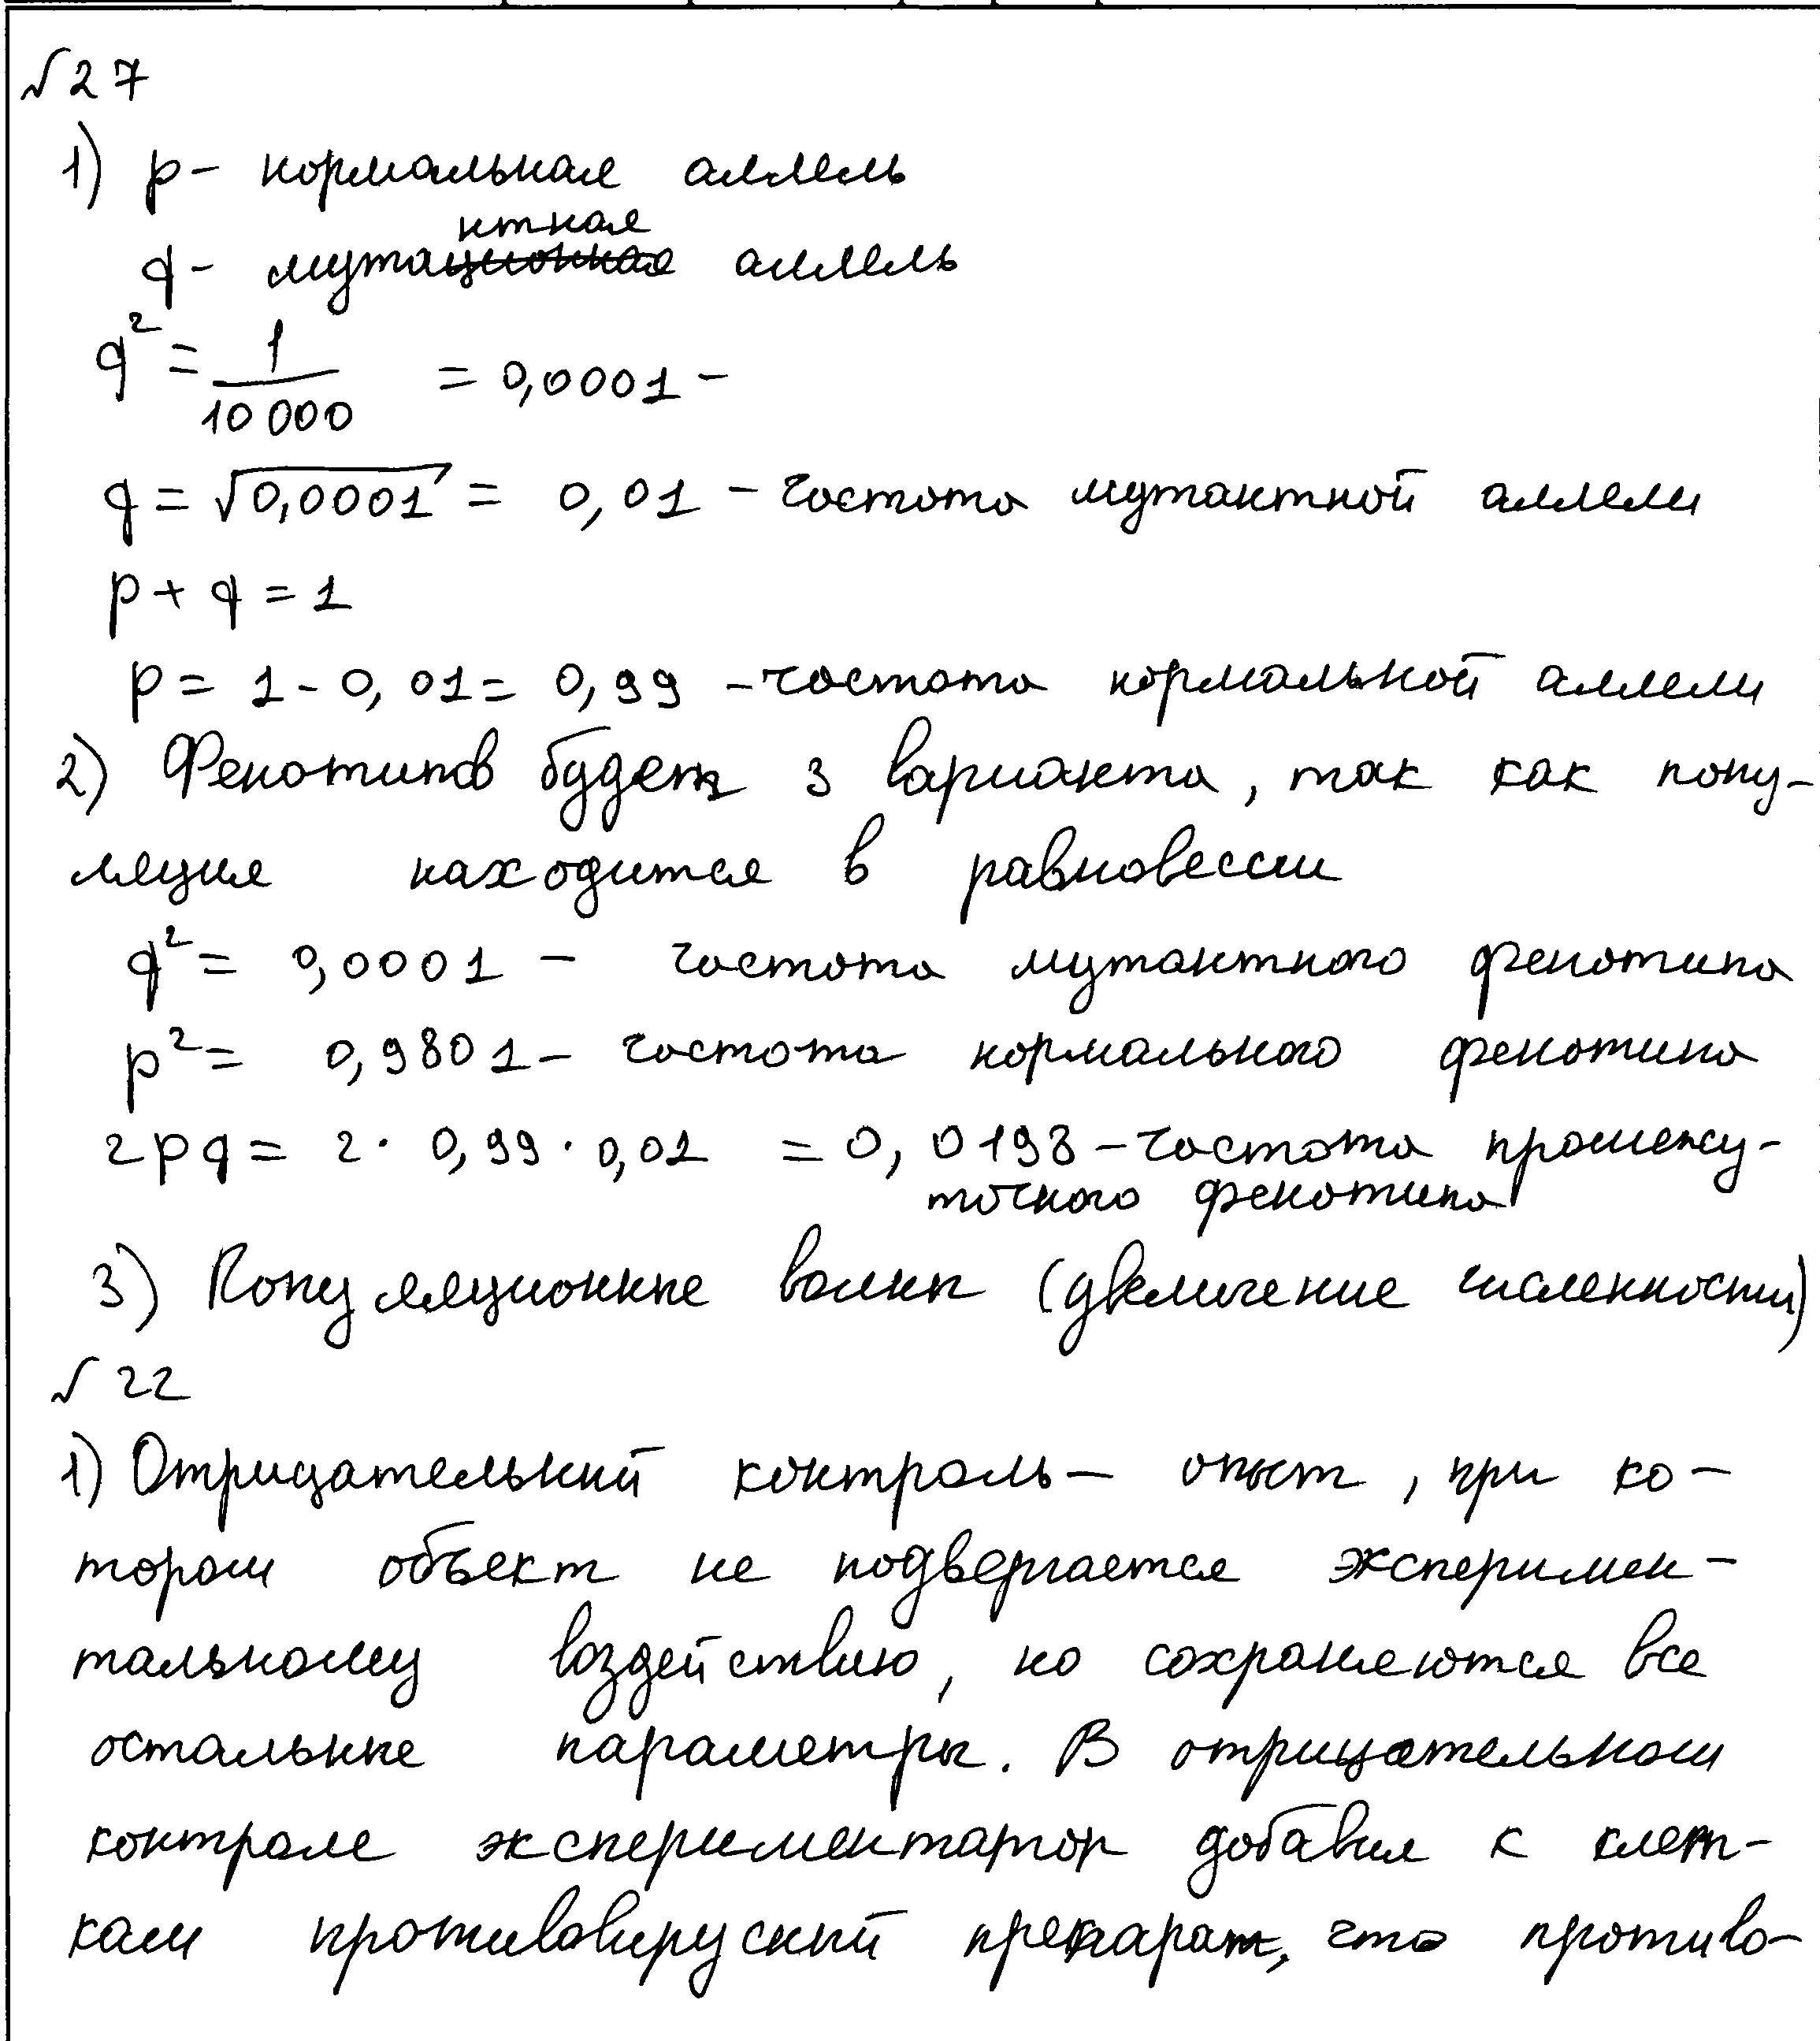 №27
1) p - нормальная аллель
нтная
q - мутационная аллель
q² = 1/10 000 = 0,0001 -
q = √0,0001 = 0,01 - частота мутантной аллели
p + q = 1
p = 1 - 0,01 = 0,99 - частота нормальной аллели
2) Фенотипов будет 3 варианта, так как попу-
ляция находится в равновессии
q² = 0,0001 - частота мутантного фенотипа
p² = 0,9801 - частота нормального фенотипа
2pq = 2 · 0,99 · 0,01 = 0,0198 - частота промежу-
точного фенотипа
3) Популяционные волны (увеличение численности)
№22
1) Отрицательный контроль - опыт, при ко-
тором объект не подвергается эксперимен-
тальному воздействию, но сохраняются все
остальные параметры. В отрицательном
контроле экспериментатор добавил к клет-
кам противовирусный препарат, что противо-